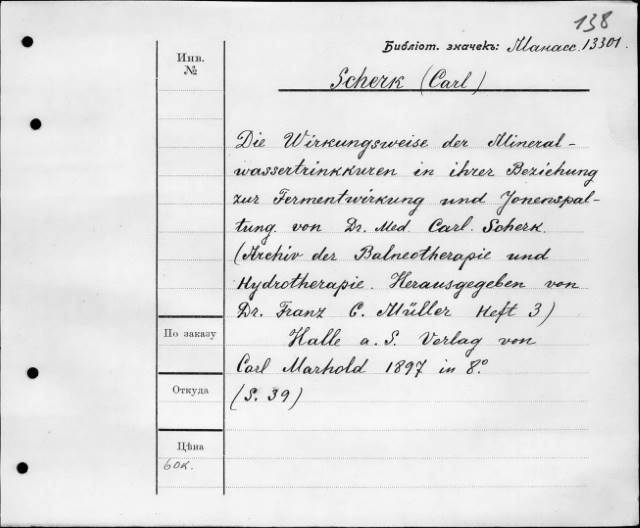 138
Библiот. значекъ: Манасс. 13301.
Инв.
№
Scherk (Carl)
Die Wirkungsweise der Mineral-
wassertrinkkuren in ihrer Beziehung
zur Fermentwirkung und Jonenspal-
tung. von Dr. Med. Carl. Scherk.
(Archiv der Balneotherapie und
Hydrotherapie. Herausgegeben von
Dr. Franz C. Müller Heft 3)
По заказу
Halle a. S. Verlag von
Carl Marhold 1897 in 8.º
Откуда
(S. 39)
Цѣна
60к.